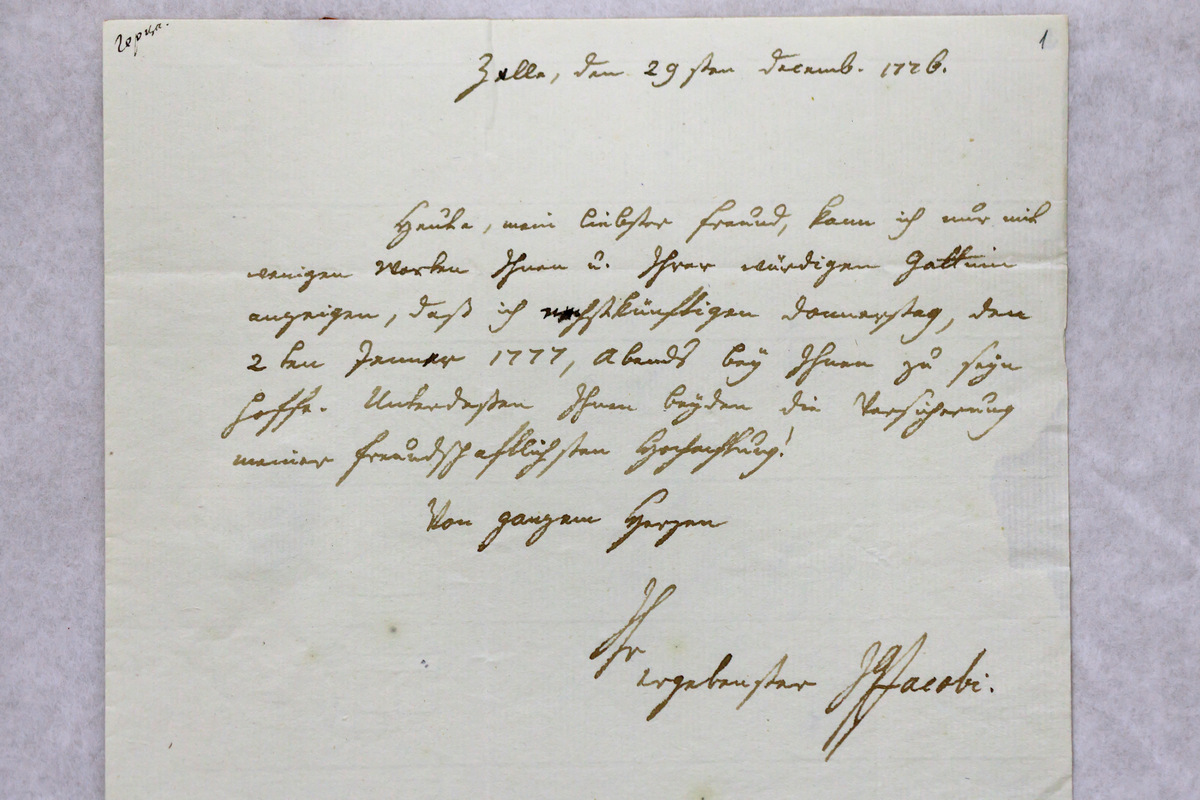 1
Zelle, den 29sten Decemb. 1776.
Heute, mein liebster Freund, kann ich nur mit
wenigen Worten Ihnen u. Ihrer würdigen Gattinn
anzeigen, daß ich nechstkünftigen Donnerstag, den
2ten Jenner 1777, Abends bey Ihnen zu seyn
hoffe. Unterdeßen Ihnen beyden die Versicherung
meiner freundschaftlichsten Hochachtung!
Von ganzem Herzen
Ihr
ergebenster JGJacobi.